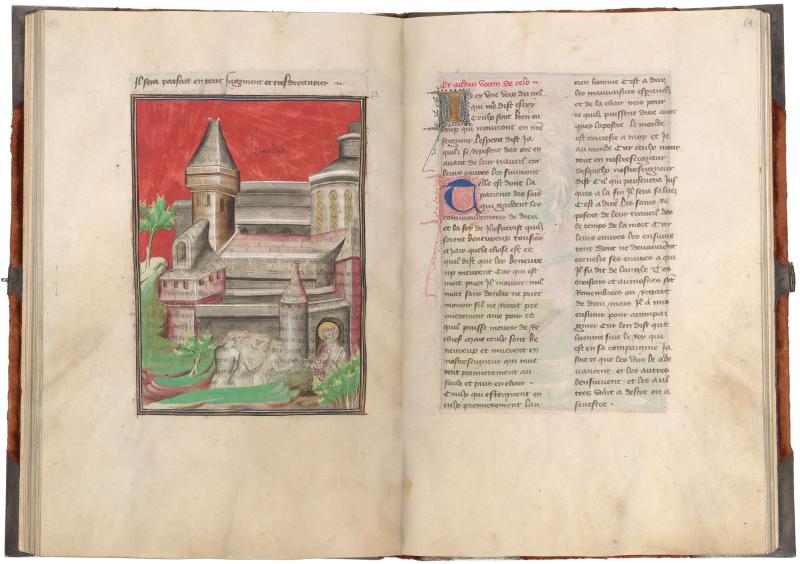 Il sera parfait en tout Jugment et tres droiturier
Et audiui vocem de celo
Ie oy vne voix du ciel
qui me dist escry
Ceulx sont bien eu
reux qui mourront en nre
seigneur Lesperit dist Ja
quilz se reposent des ore en
auant de leur traueil car
leurs euures les suiuront
Celle est dont la
pacience des sais
qui gardent les
commandemens de dieu
et la foy de Jhesucrist quilz
soient beneureux
Mais quelle chose est ce
quil dist que les beneure
ux meurent Car qui est
mort puet Il mourir / nul
mort sans doubte ne puet
mourir sil ne recoit pre
mierement ame pour ce
quil puisse mourir de re
chief Mais ceulx sont be
neureux et meurent en
nostre seigneur qui meu
rent premierement au
siecle et puis en chair
Ceulx qui esteignent en
eulx premierement lan
cien homme Cest a dire
les mauuaisties espirituelz
et de la chair
ce quilz puissent dire auec
ques lapostre Le monde
est crucefie a moy et Je
au monde Car ceulx mour
ront en nostre seigneur
desquelz nostre seigneur
dist Cil qui perseuera Jus
ques a la fin Il sera sauuez
Cest a dire Les sains re
posent de leur trauail des
le temps de la mort Car
leurs euures les ensuiue
ront dont
cornelie ses euures a qui
Il fu dit de langele Tes
oroisons et aumosnes sont
Remembrees ou Regart
de dieu / mais Il a mis
ensuiure pour acompai
gnier Car len dist que
homme suit le roy qui
est en sa compaignie Ja
soit ce que les vns le ade
uancent / et les autres
lensuiuent / et les aul
tres sont a destre ou a
senestre